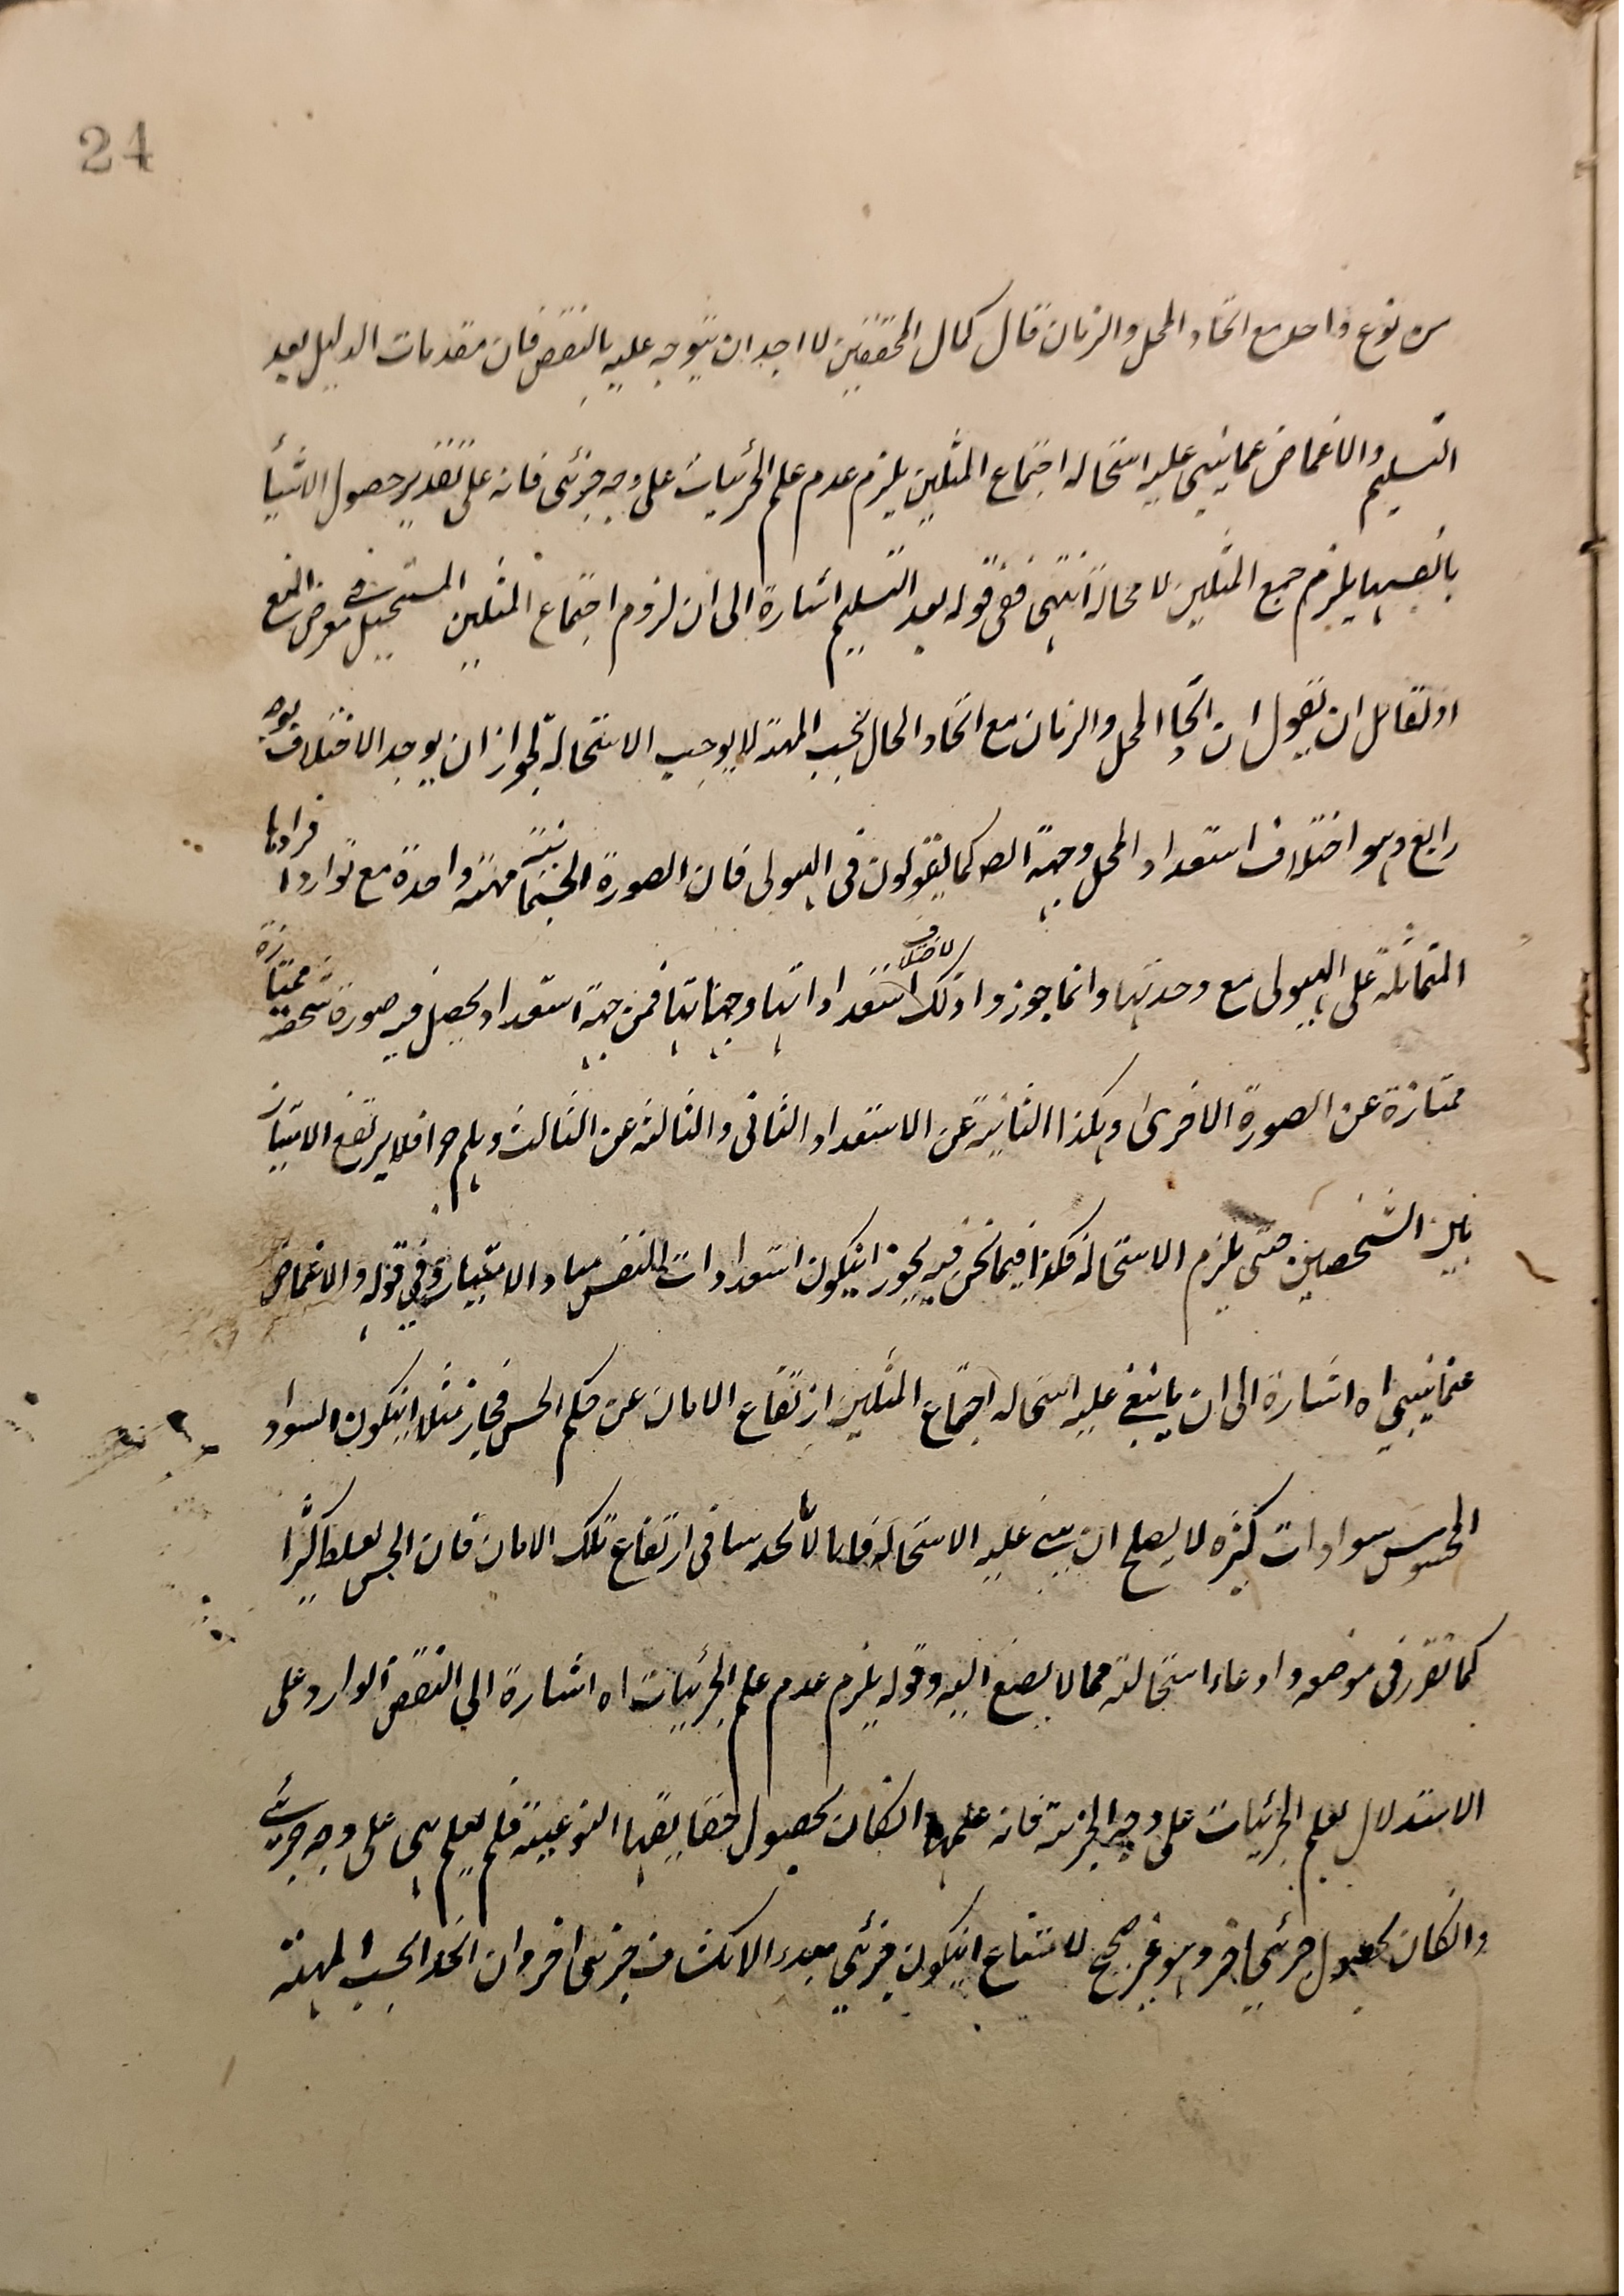 24
من نوع واحد مع اتحاد المحل والزمان قال كمال المحققين لا اجد ان يتوجه عليه بالنقض فان مقدمات الدليل بعد
التسليم والاغماض عما يبنى عليه استحالة اجتماع المثلين يلزم عدم علم الجزئيات على وجه جزئى فانه على تقدير حصول الاشياء
بانفسها يلزم جمع المثلين لا محالة انتهى ففى قوله بعد التسليم اشارة الى ان لزوم اجتماع المثلين المستحيل فى معرض المنع
اذ لقائل ان يقول ان اتحاد المحل والزمان مع اتحاد الحال بحسب المهية لا يوجب الاستحالة لجواز ان يوجد الاختلاف بوجه
رابع وهو اختلاف استعداد المحل وجهة كما يقولون فى الهيولى فان الصورة الجسمانية مهية واحدة مع توارد افرادها
المتماثلة على الهيولى مع وحدتها وانما جوزوا ذلك لاختلاف استعداداتها وجهاتها فمن جهة استعداد يحصل فيه صورة شخصية ممتازة
ممتازة عن الصورة الاخرى وهكذا الثانية عن الاستعداد الثانى والثالثة عن الثالث وهلم جرا فلا يرتفع الامتياز
بين الشخصين حتى يلزم الاستحالة فكذا فيما نحن فيه يجوز ان يكون استعدادات النفس مبادى الامتياز وفى قوله والاغماض
عما يبنى اه اشارة الى ان ما يبنى عليه استحالة اجتماع المثلين ارتفاع الامان عن حكم الحس فجاز مثلا ان يكون السواد
المحسوس سوادات كثيرة لا يصلح ان يبنى عليه الاستحالة فانا لا نجد باسا فى ارتفاع تلك الامان فان الحس يغلط كثيرا
كما تقرر فى موضعه وادعاء استحالته مما لا يصغى اليه وقوله يلزم عدم علم الجزئيات اه اشارة الى النقض الوارد على
الاستدلال بعلم الجزئيات على وجه الجزئية فانه علمها ان كان بحصول حقايقها النوعية فلم يعلم هى على وجه جزئى
وان كان بحصول جزئى اخر وهو غير صحيح لامتناع ان يكون جزئى مبدء الانكشاف جزئى اخر وان اتحدا بحسب المهية